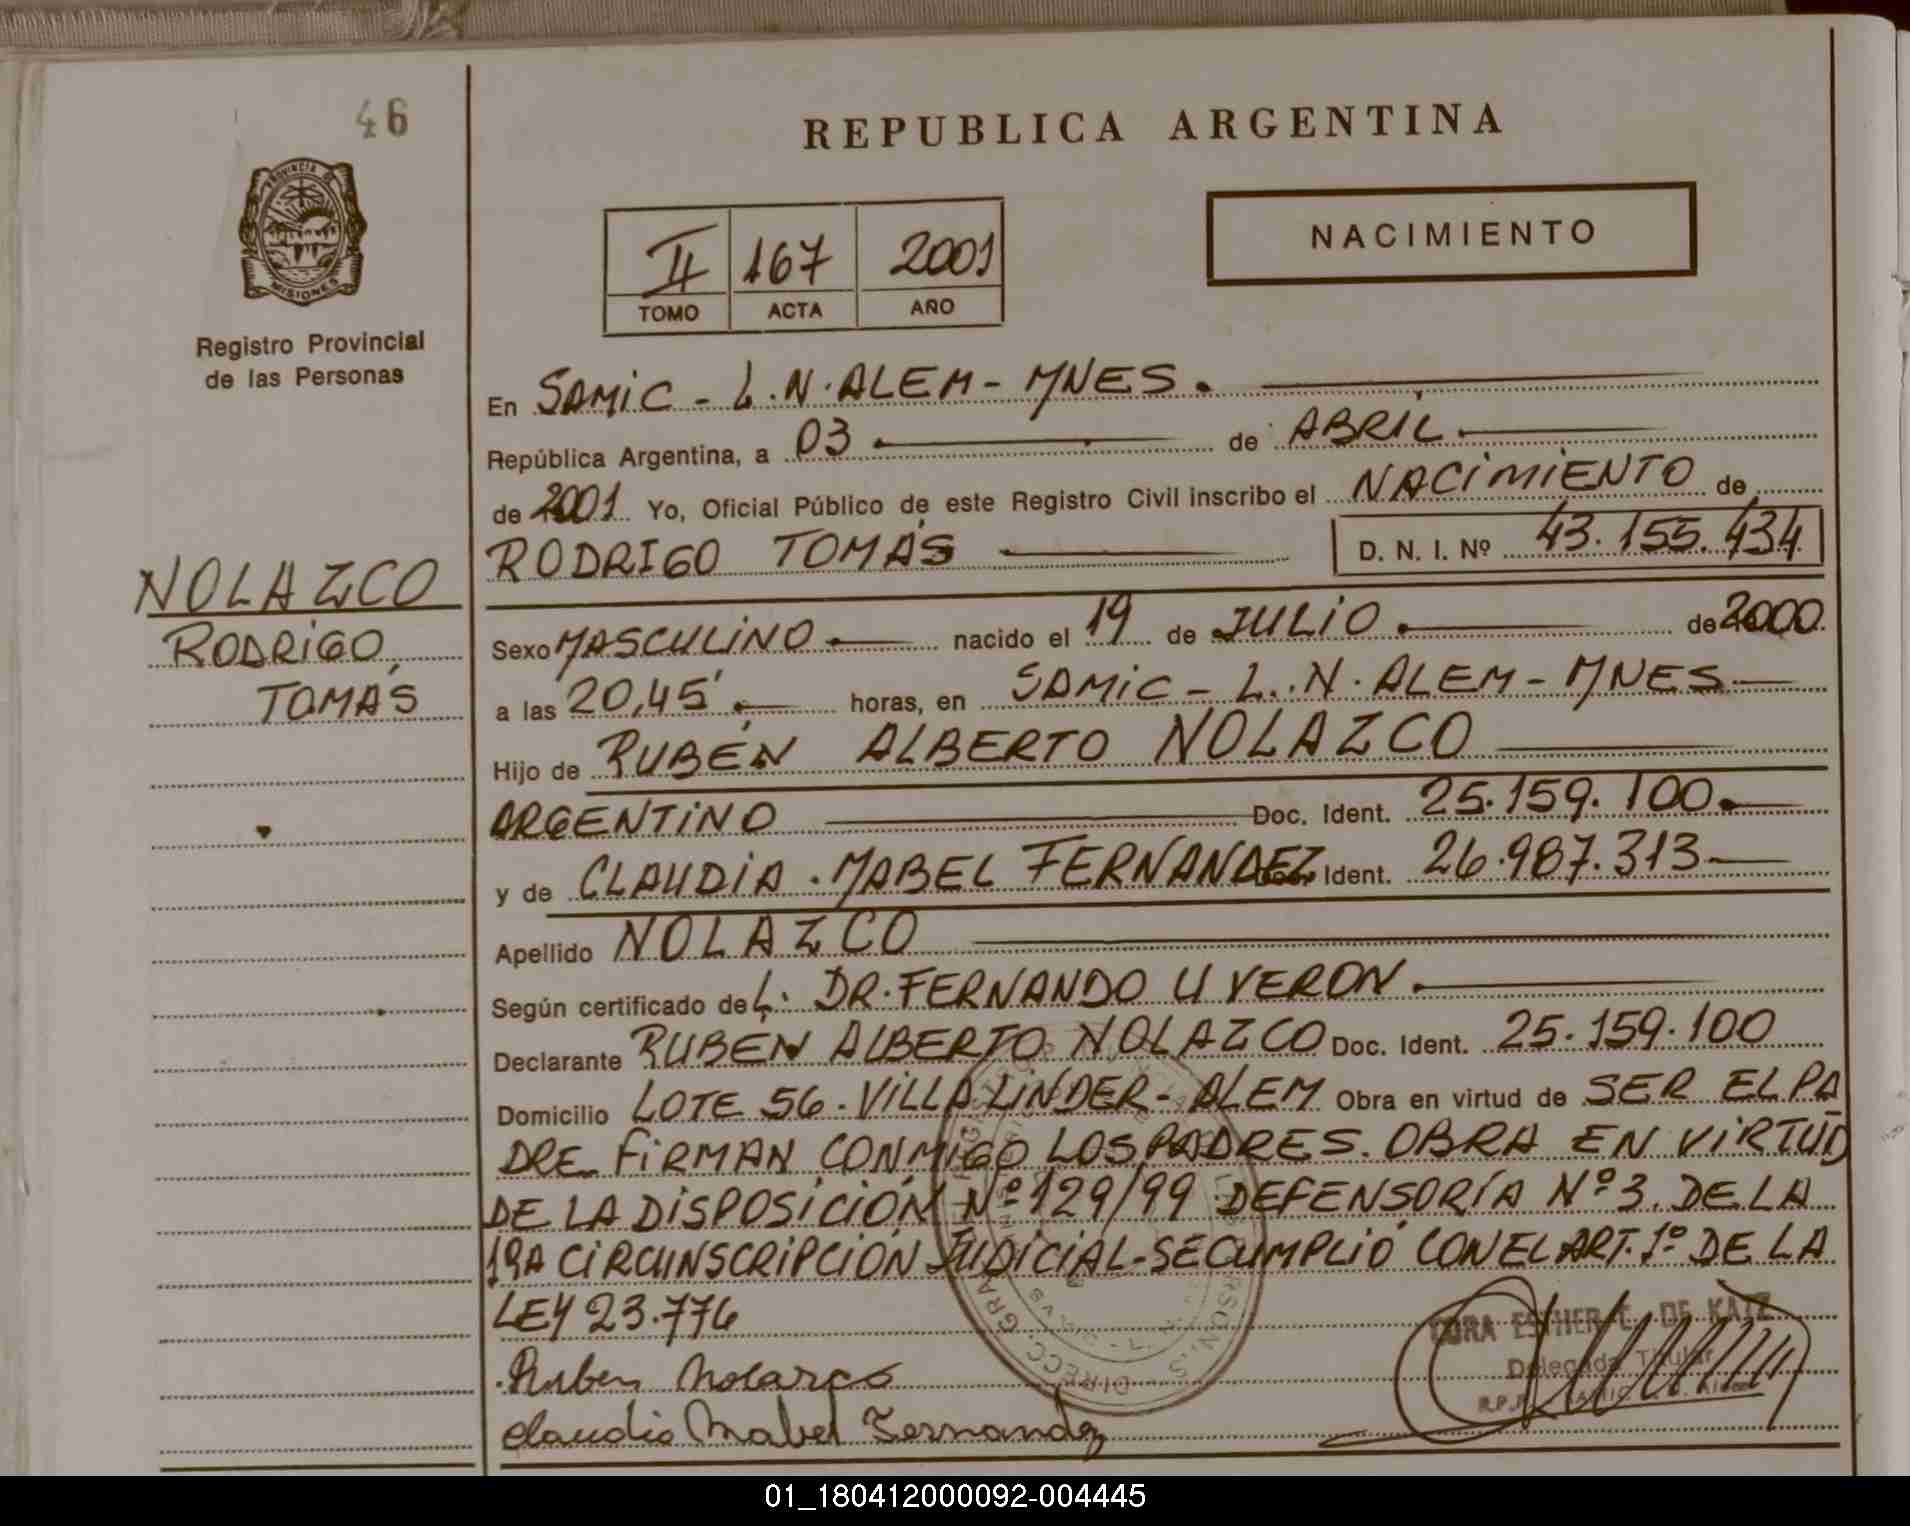 46
PROVINCIA DE
MISIONES
Registro Provincial
de las Personas
NOLAZCO
RODRIGO
TOMÁS
REPUBLICA ARGENTINA
II 167 2001
TOMO ACTA AÑO
NACIMIENTO
En SAMIC - L.N. ALEM - MNES.
República Argentina, a 03 de ABRIL
de 2001 Yo, Oficial Público de este Registro Civil inscribo el NACIMIENTO de
RODRIGO TOMÁS D. N. I. Nº 43.155.434
Sexo MASCULINO nacido el 19 de JULIO de 2000
a las 20,45' horas, en SAMIC - L.N. ALEM - MNES
Hijo de RUBÉN ALBERTO NOLAZCO
ARGENTINO Doc. Ident. 25.159.100
y de CLAUDIA MABEL FERNANDEZ Doc. Ident. 26.987.313
Apellido NOLAZCO
Según certificado de L. DR. FERNANDO U VERON
Declarante RUBÉN ALBERTO NOLAZCO Doc. Ident. 25.159.100
Domicilio LOTE 56. VILLA LINDER - ALEM Obra en virtud de SER EL PA
DRE FIRMAN CONMIGO LOS PADRES. OBRA EN VIRTUD
DE LA DISPOSICIÓN Nº 129/99 DEFENSORÍA Nº 3. DE LA
1RA CIRCUNSCRIPCIÓN JUDICIAL - SE CUMPLIÓ CON EL ART. 1º DE LA
LEY 23.776
Ruben Nolazco
Claudia Mabel Fernandez
ESTHER C. DE KATZ
Delegada Titular
01_180412000092-004445